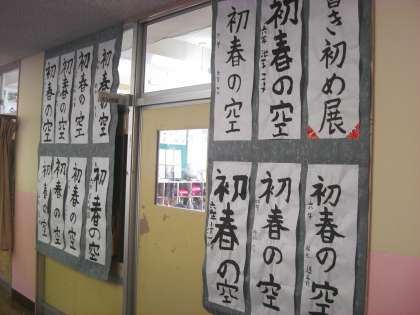 書き初め展
初春の空
初春の空
初春の空
初春の空
初春の空
初春の空
初春の空
初春の空
初春の空
初春の空
初春の空
初春の空
初春の空